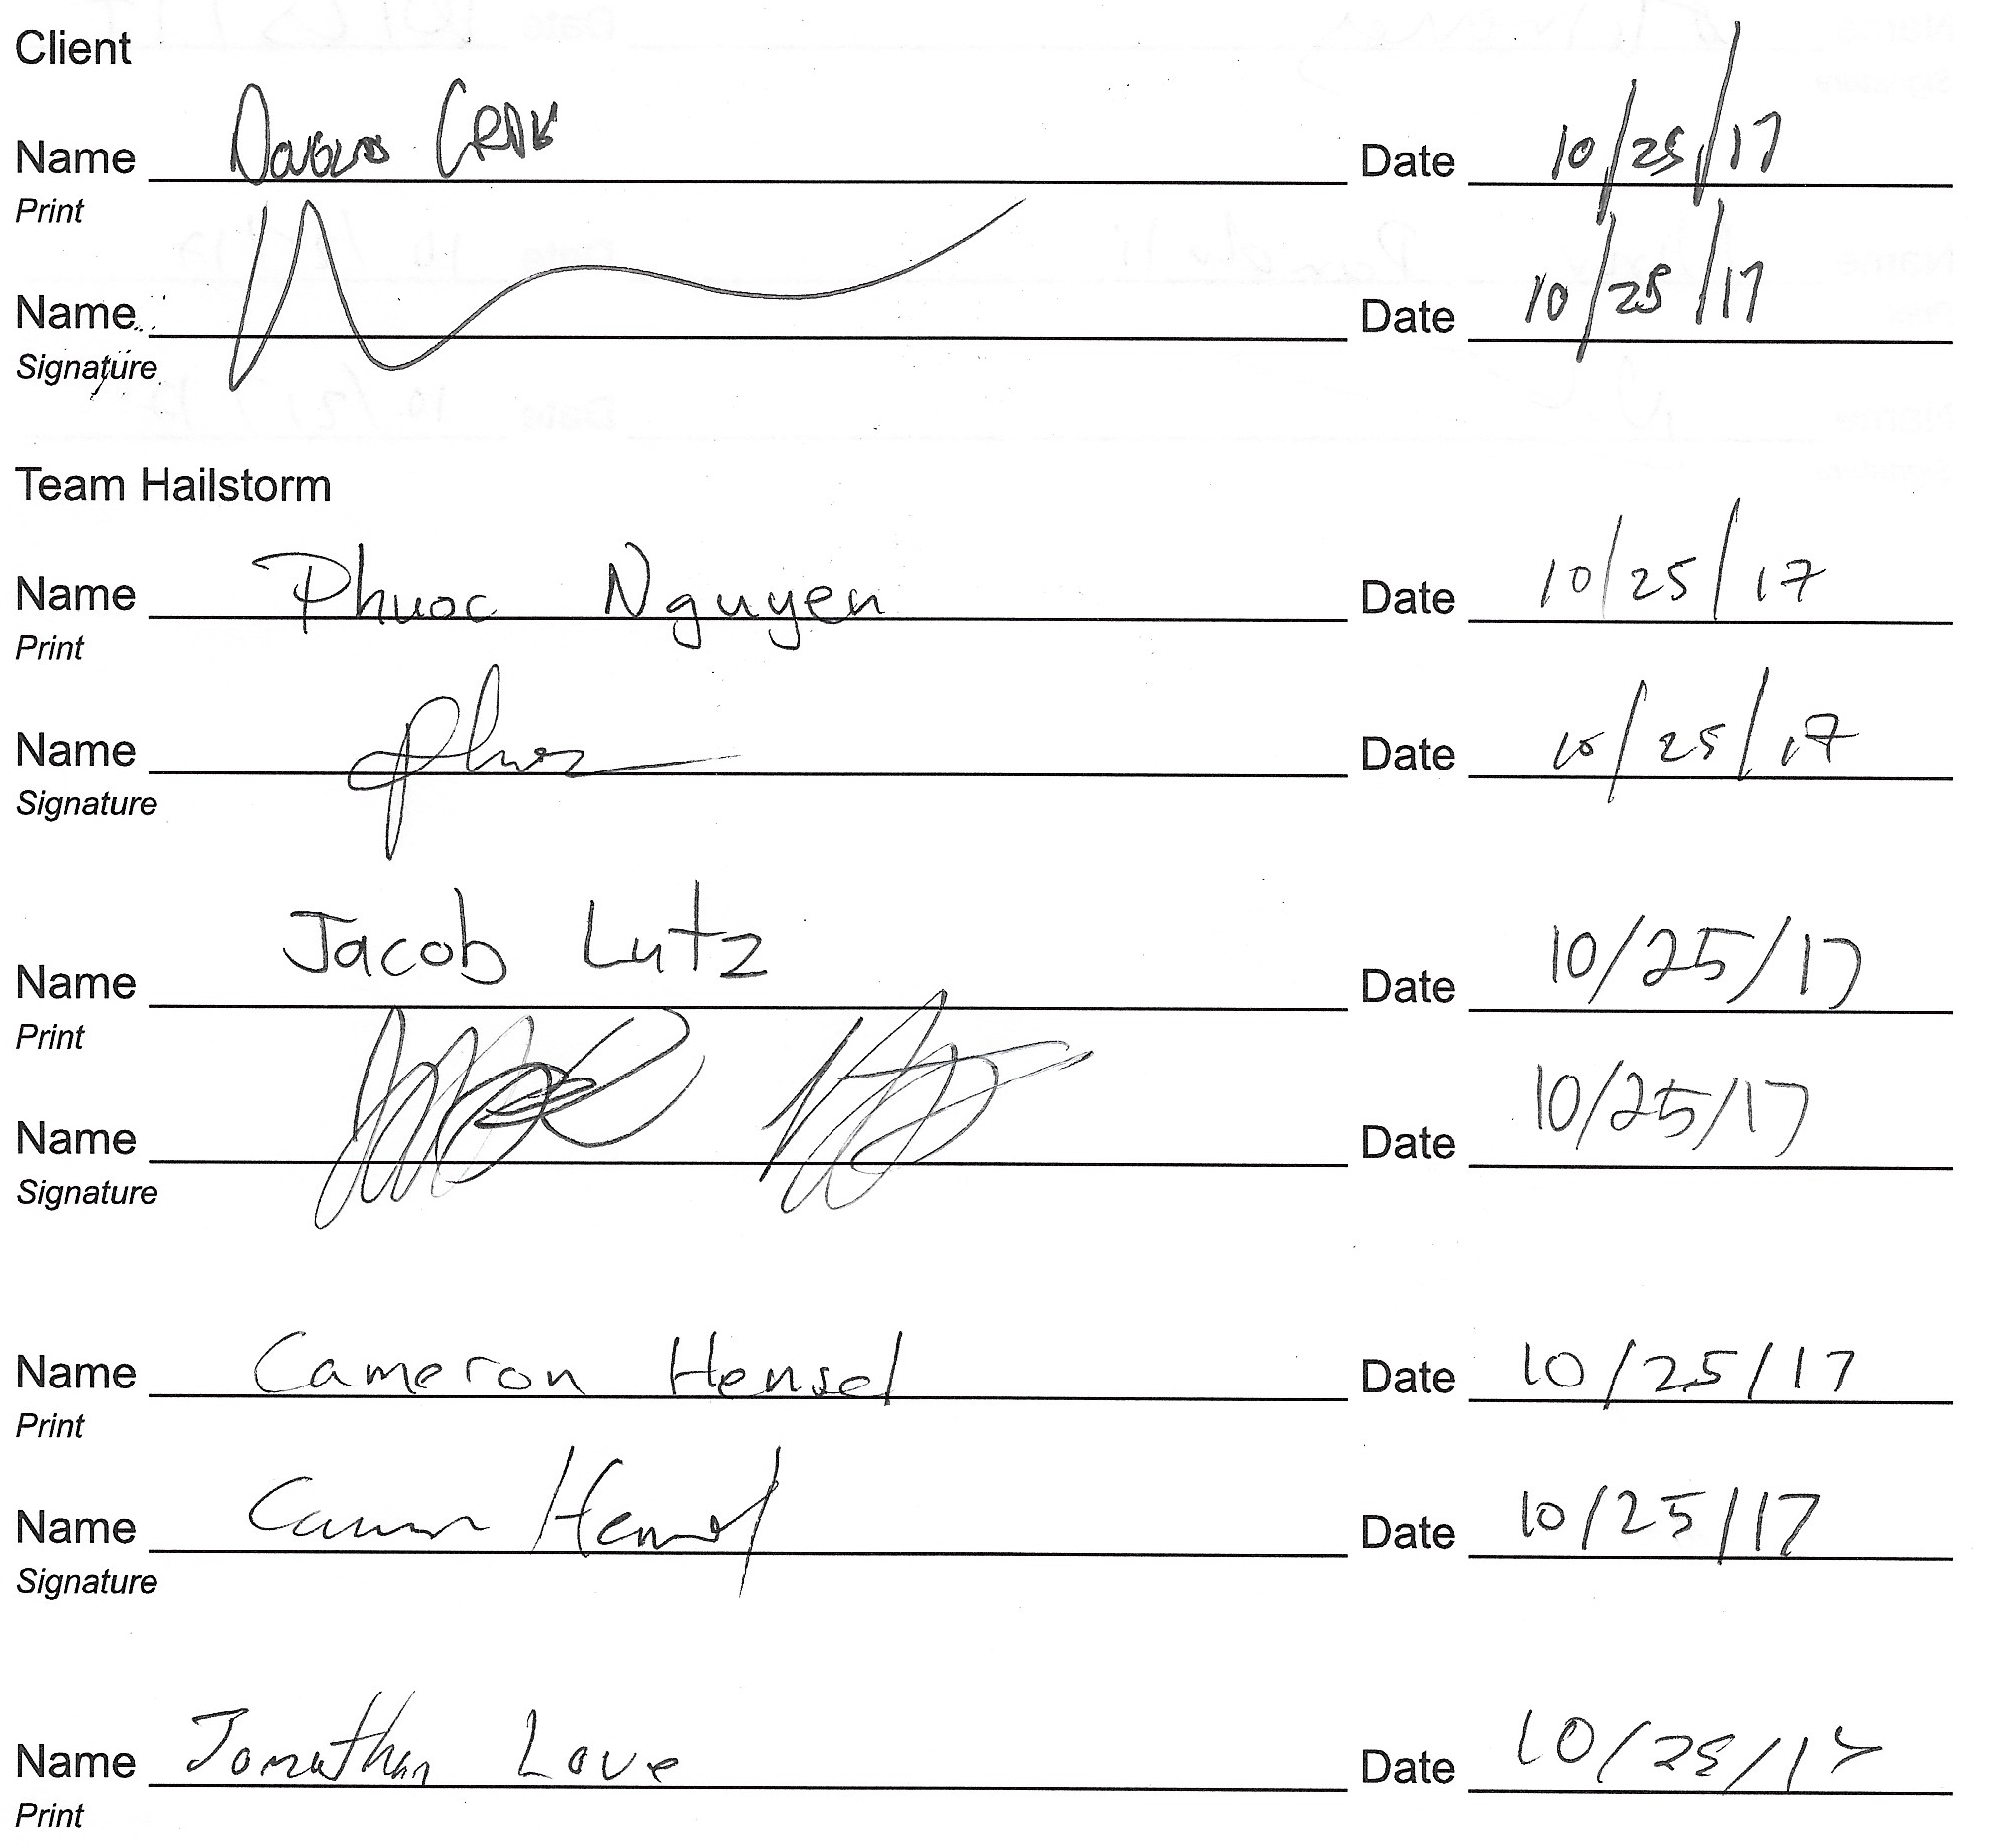 Client
Name Douglas Craig Date 10/25/17
Print
Name Date 10/25/17
Signature
Team Hailstorm
Name Phuoc Nguyen Date 10/25/17
Print
Name Date 10/25/17
Signature
Jacob Lutz
Name Date 10/25/17
Print
Name Date 10/25/17
Signature
Name Cameron Hensel Date 10/25/17
Print
Name Cameron Hensel Date 10/25/17
Signature
Name Jonathan Love Date 10/25/17
Print